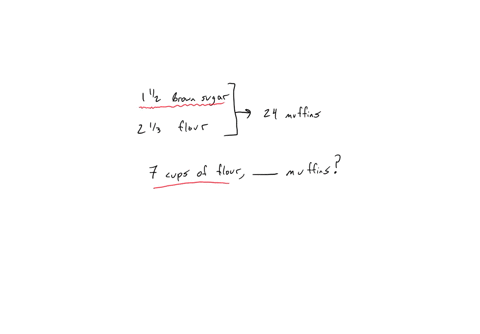 1 1/2 Brown sugar
2 1/3 flour
→ 24 muffins
7 cups of flour, ___ muffins?